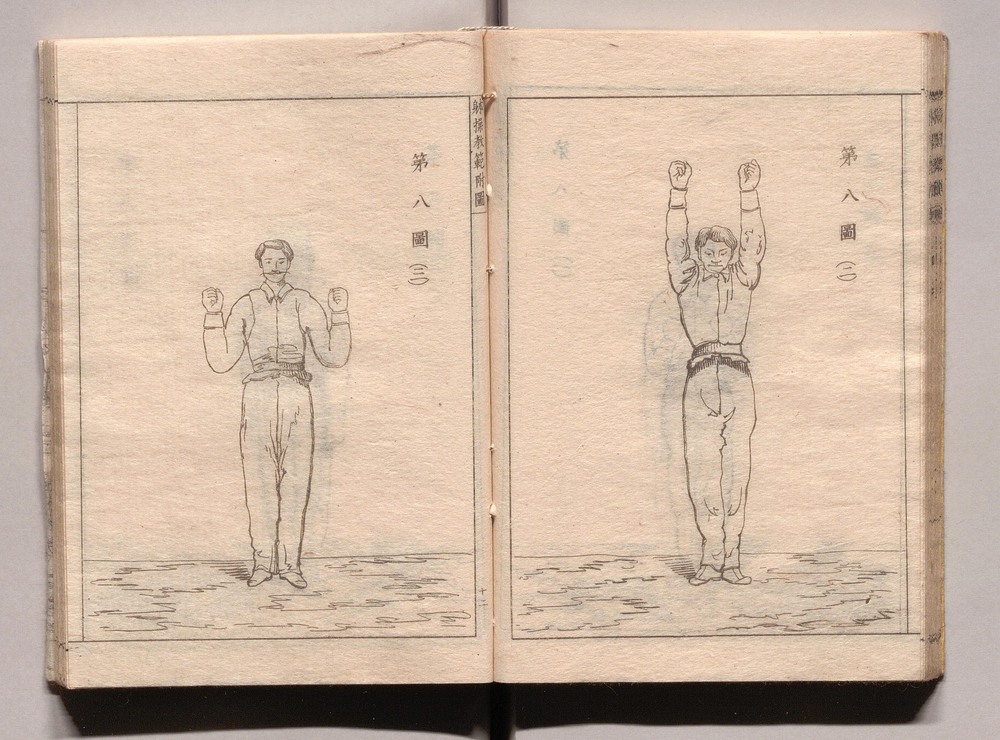 第八圖(二)
躰操教範附圖
十
第八圖(三)